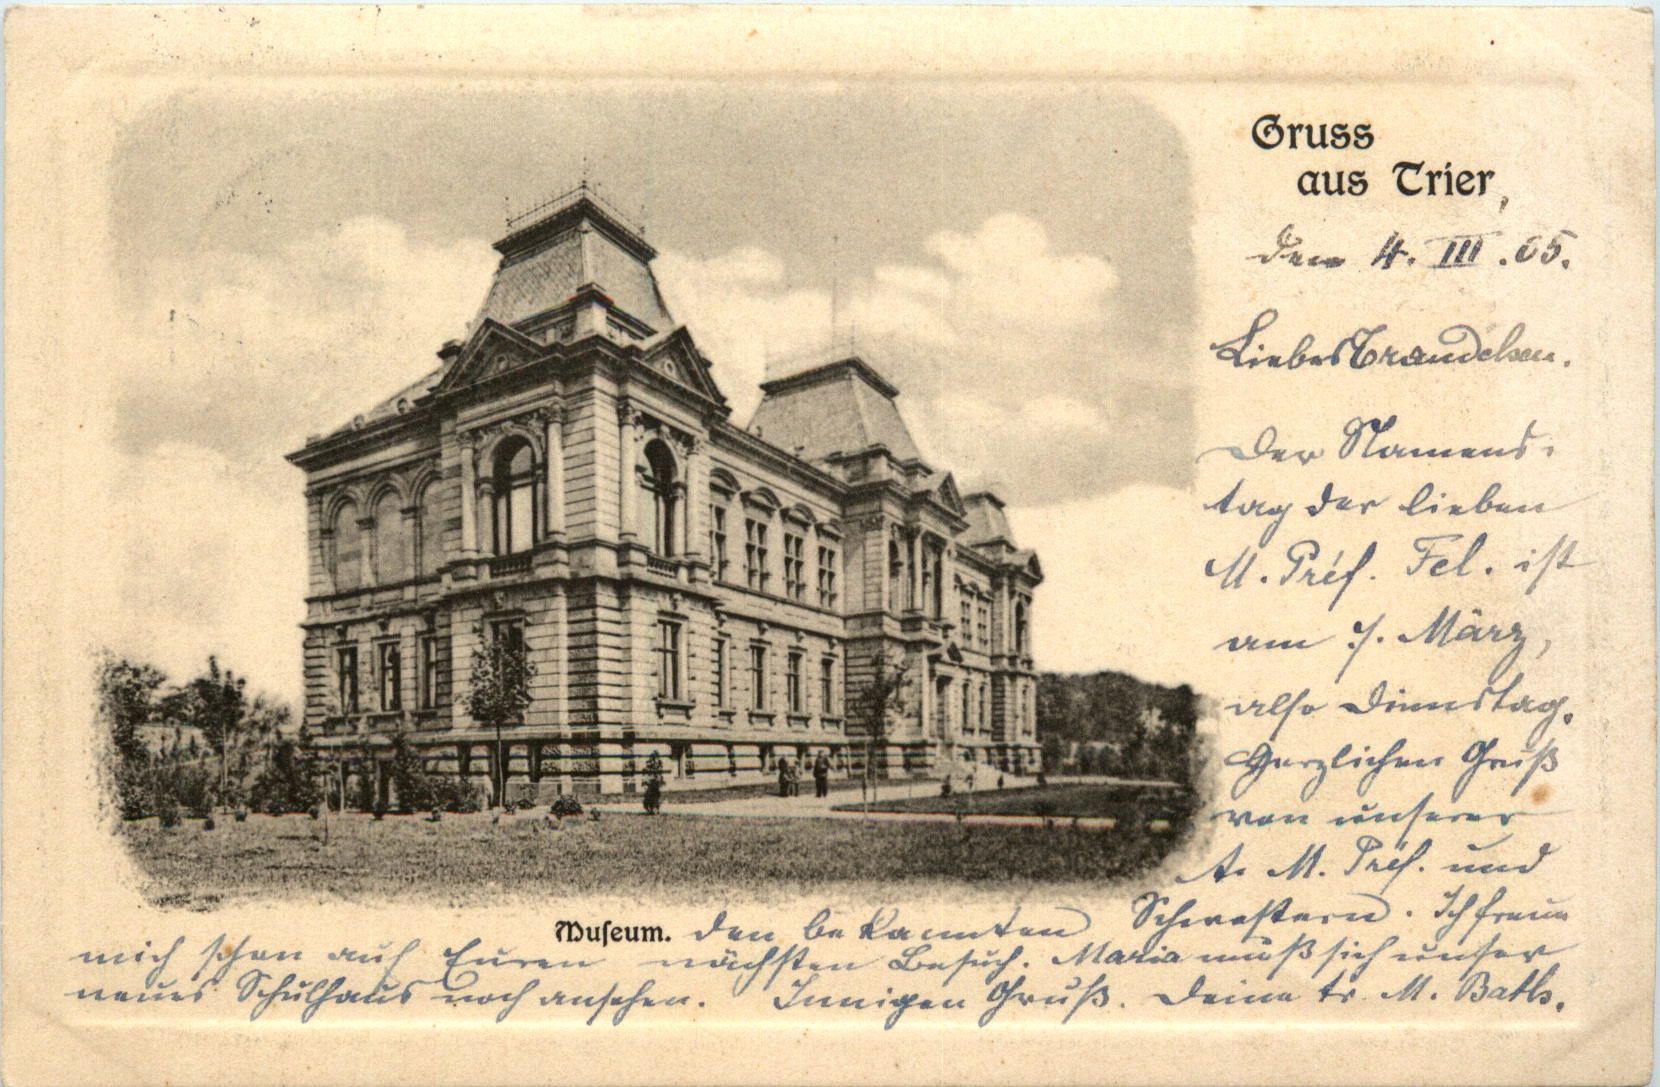 Gruss
aus Trier,
den 4. III. 05.
Liebes Traudchen.
Der Namens-
tag der lieben
M. Préf. Fel. ist
am 7. März,
also Dienstag.
Herzlichen Gruß
von unserer
M. Préf. und
Museum. den bekannten Schwestern. Ich freue
mich schon auf Euren nächsten Besuch. Maria muß sich unser
neues Schulhaus noch ansehen. Innigen Gruß. Deine tr. M. Bath.